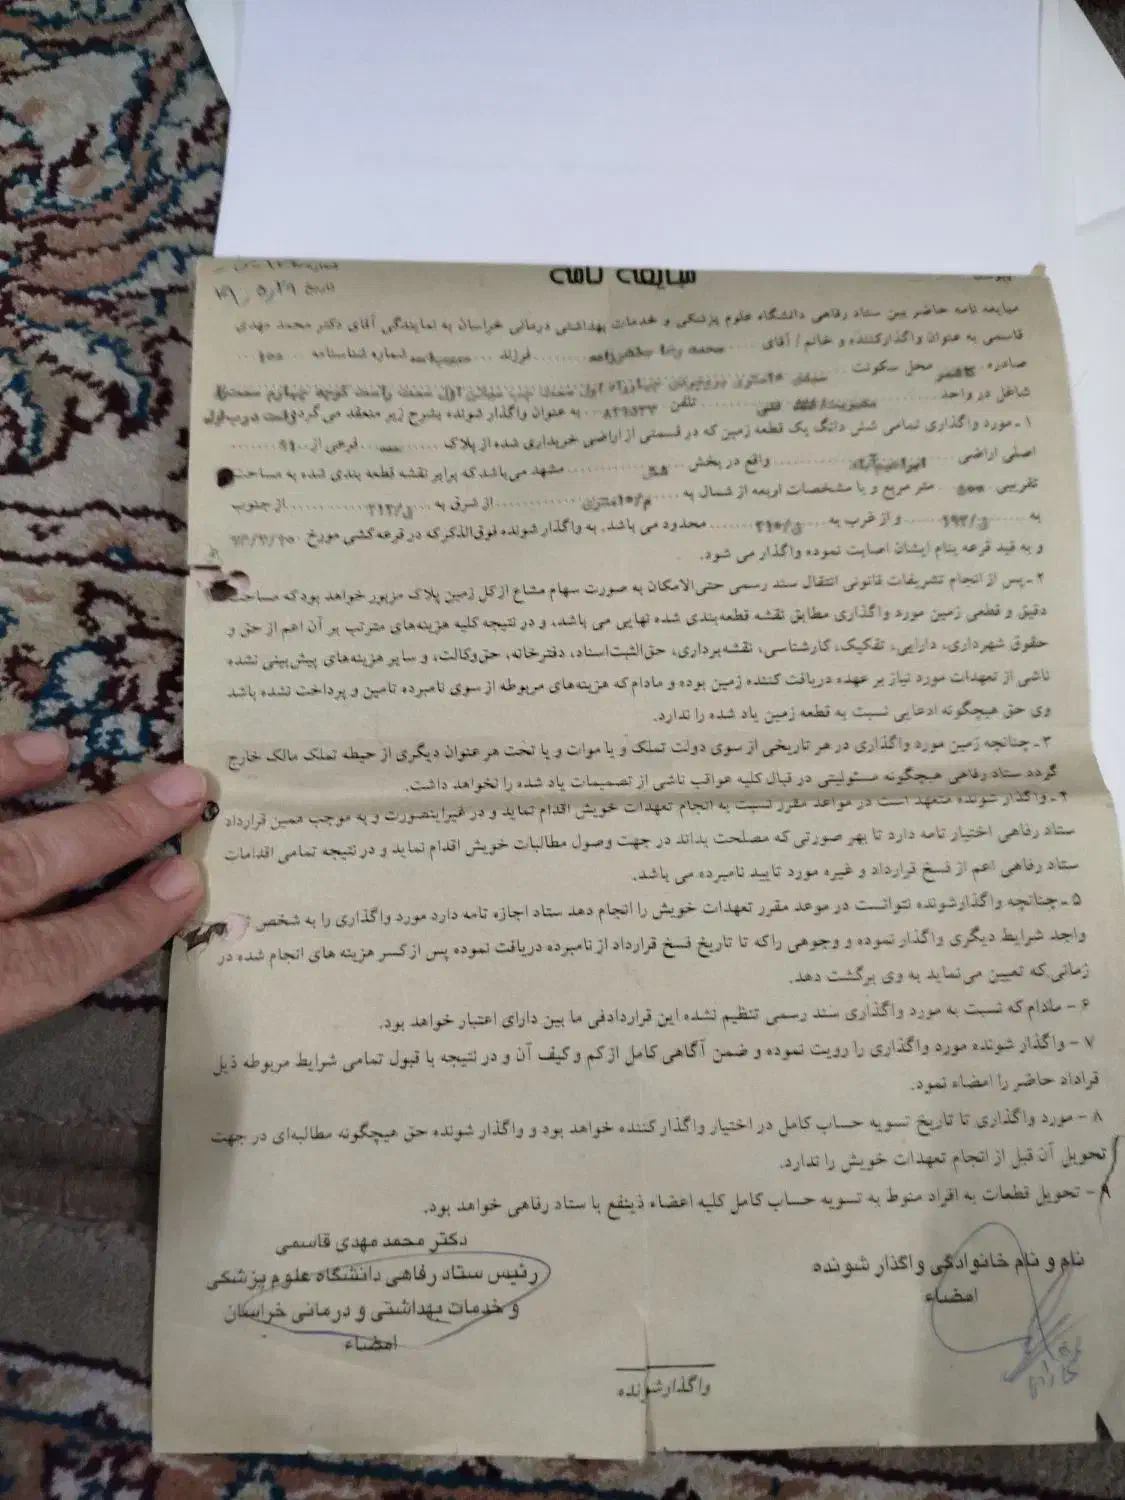 مبایعه نامه
تاریخ
مبایعه نامه حاضر بین ستاد رفاهی دانشگاه علوم پزشکی و خدمات بهداشتی درمانی خراسان به نمایندگی آقای دکتر محمد مهدی
قاسمی به عنوان واگذارکننده و خانم / آقای محمد رضا فرزند شماره شناسنامه
صادره محل سکونت
شاغل در واحد تلفن به عنوان واگذار شونده بشرح زیر منعقد می گردد
۱ـ مورد واگذاری تمامی شش دانگ یک قطعه زمین که در قسمتی از اراضی خریداری شده از پلاک فرعی از
اصلی اراضی واقع در بخش مشهد می باشد که برابر نقشه قطعه بندی شده به مساحت
تقریبی ۵۰۰ متر مربع و با مشخصات اربعه از شمال به از شرق به از جنوب
به و از غرب به محدود می باشد. به واگذار شونده فوق الذکر که در قرعه کشی مورخ
و به قید قرعه بنام ایشان اصابت نموده واگذار می شود.
۲ـ پس از انجام تشریفات قانونی انتقال سند رسمی حتی الامکان به صورت سهام مشاع از کل زمین پلاک مزبور خواهد بود که مساحت
دقیق و قطعی زمین مورد واگذاری مطابق نقشه قطعه بندی شده نهایی می باشد، و در نتیجه کلیه هزینه های مترتب بر آن اعم از حق و
حقوق شهرداری، دارایی، تفکیک، کارشناسی، نقشه برداری، حق الثبت اسناد، دفترخانه، حق وکالت، و سایر هزینه های پیش بینی نشده
ناشی از تعهدات مورد نیاز بر عهده دریافت کننده زمین بوده و مادام که هزینه های مربوطه از سوی نامبرده تامین و پرداخت نشده باشد
وی حق هیچگونه ادعایی نسبت به قطعه زمین یاد شده را ندارد.
۳ـ چنانچه زمین مورد واگذاری در هر تاریخی از سوی دولت تملک و یا موات و یا تحت هر عنوان دیگری از حیطه تملک مالک خارج
گردد ستاد رفاهی هیچگونه مسئولیتی در قبال کلیه عواقب ناشی از تصمیمات یاد شده را نخواهد داشت.
۴ـ واگذار شونده متعهد است در مواعد مقرر نسبت به انجام تعهدات خویش اقدام نماید و در غیر اینصورت و به موجب همین قرارداد
ستاد رفاهی اختیار نامه دارد تا بهر صورتی که مصلحت بداند در جهت وصول مطالبات خویش اقدام نماید و در نتیجه تمامی اقدامات
ستاد رفاهی اعم از فسخ قرارداد و غیره مورد تایید نامبرده می باشد.
۵ـ چنانچه واگذارشونده نتوانست در موعد مقرر تعهدات خویش را انجام دهد ستاد اجازه نامه دارد مورد واگذاری را به شخص
واجد شرایط دیگری واگذار نموده و وجوهی راکه تا تاریخ فسخ قرارداد از نامبرده دریافت نموده پس از کسر هزینه های انجام شده در
زمانی که تعیین می نماید به وی برگشت دهد.
۶ - مادام که نسبت به مورد واگذاری سند رسمی تنظیم نشده این قراردادفی ما بین دارای اعتبار خواهد بود.
۷ - واگذار شونده مورد واگذاری را رویت نموده و ضمن آگاهی کامل از کم و کیف آن و در نتیجه با قبول تمامی شرایط مربوطه ذیل
قراداد حاضر را امضاء نمود.
۸ - مورد واگذاری تا تاریخ تسویه حساب کامل در اختیار واگذار کننده خواهد بود و واگذار شونده حق هیچگونه مطالبه‌ای در جهت
تحویل آن قبل از انجام تعهدات خویش را ندارد.
۹ - تحویل قطعات به افراد منوط به تسویه حساب کامل کلیه اعضاء ذینفع با ستاد رفاهی خواهد بود.
نام و نام خانوادگی واگذار شونده
امضاء
دکتر محمد مهدی قاسمی
رئیس ستاد رفاهی دانشگاه علوم پزشکی
و خدمات بهداشتی و درمانی خراسان
امضاء
واگذارشونده